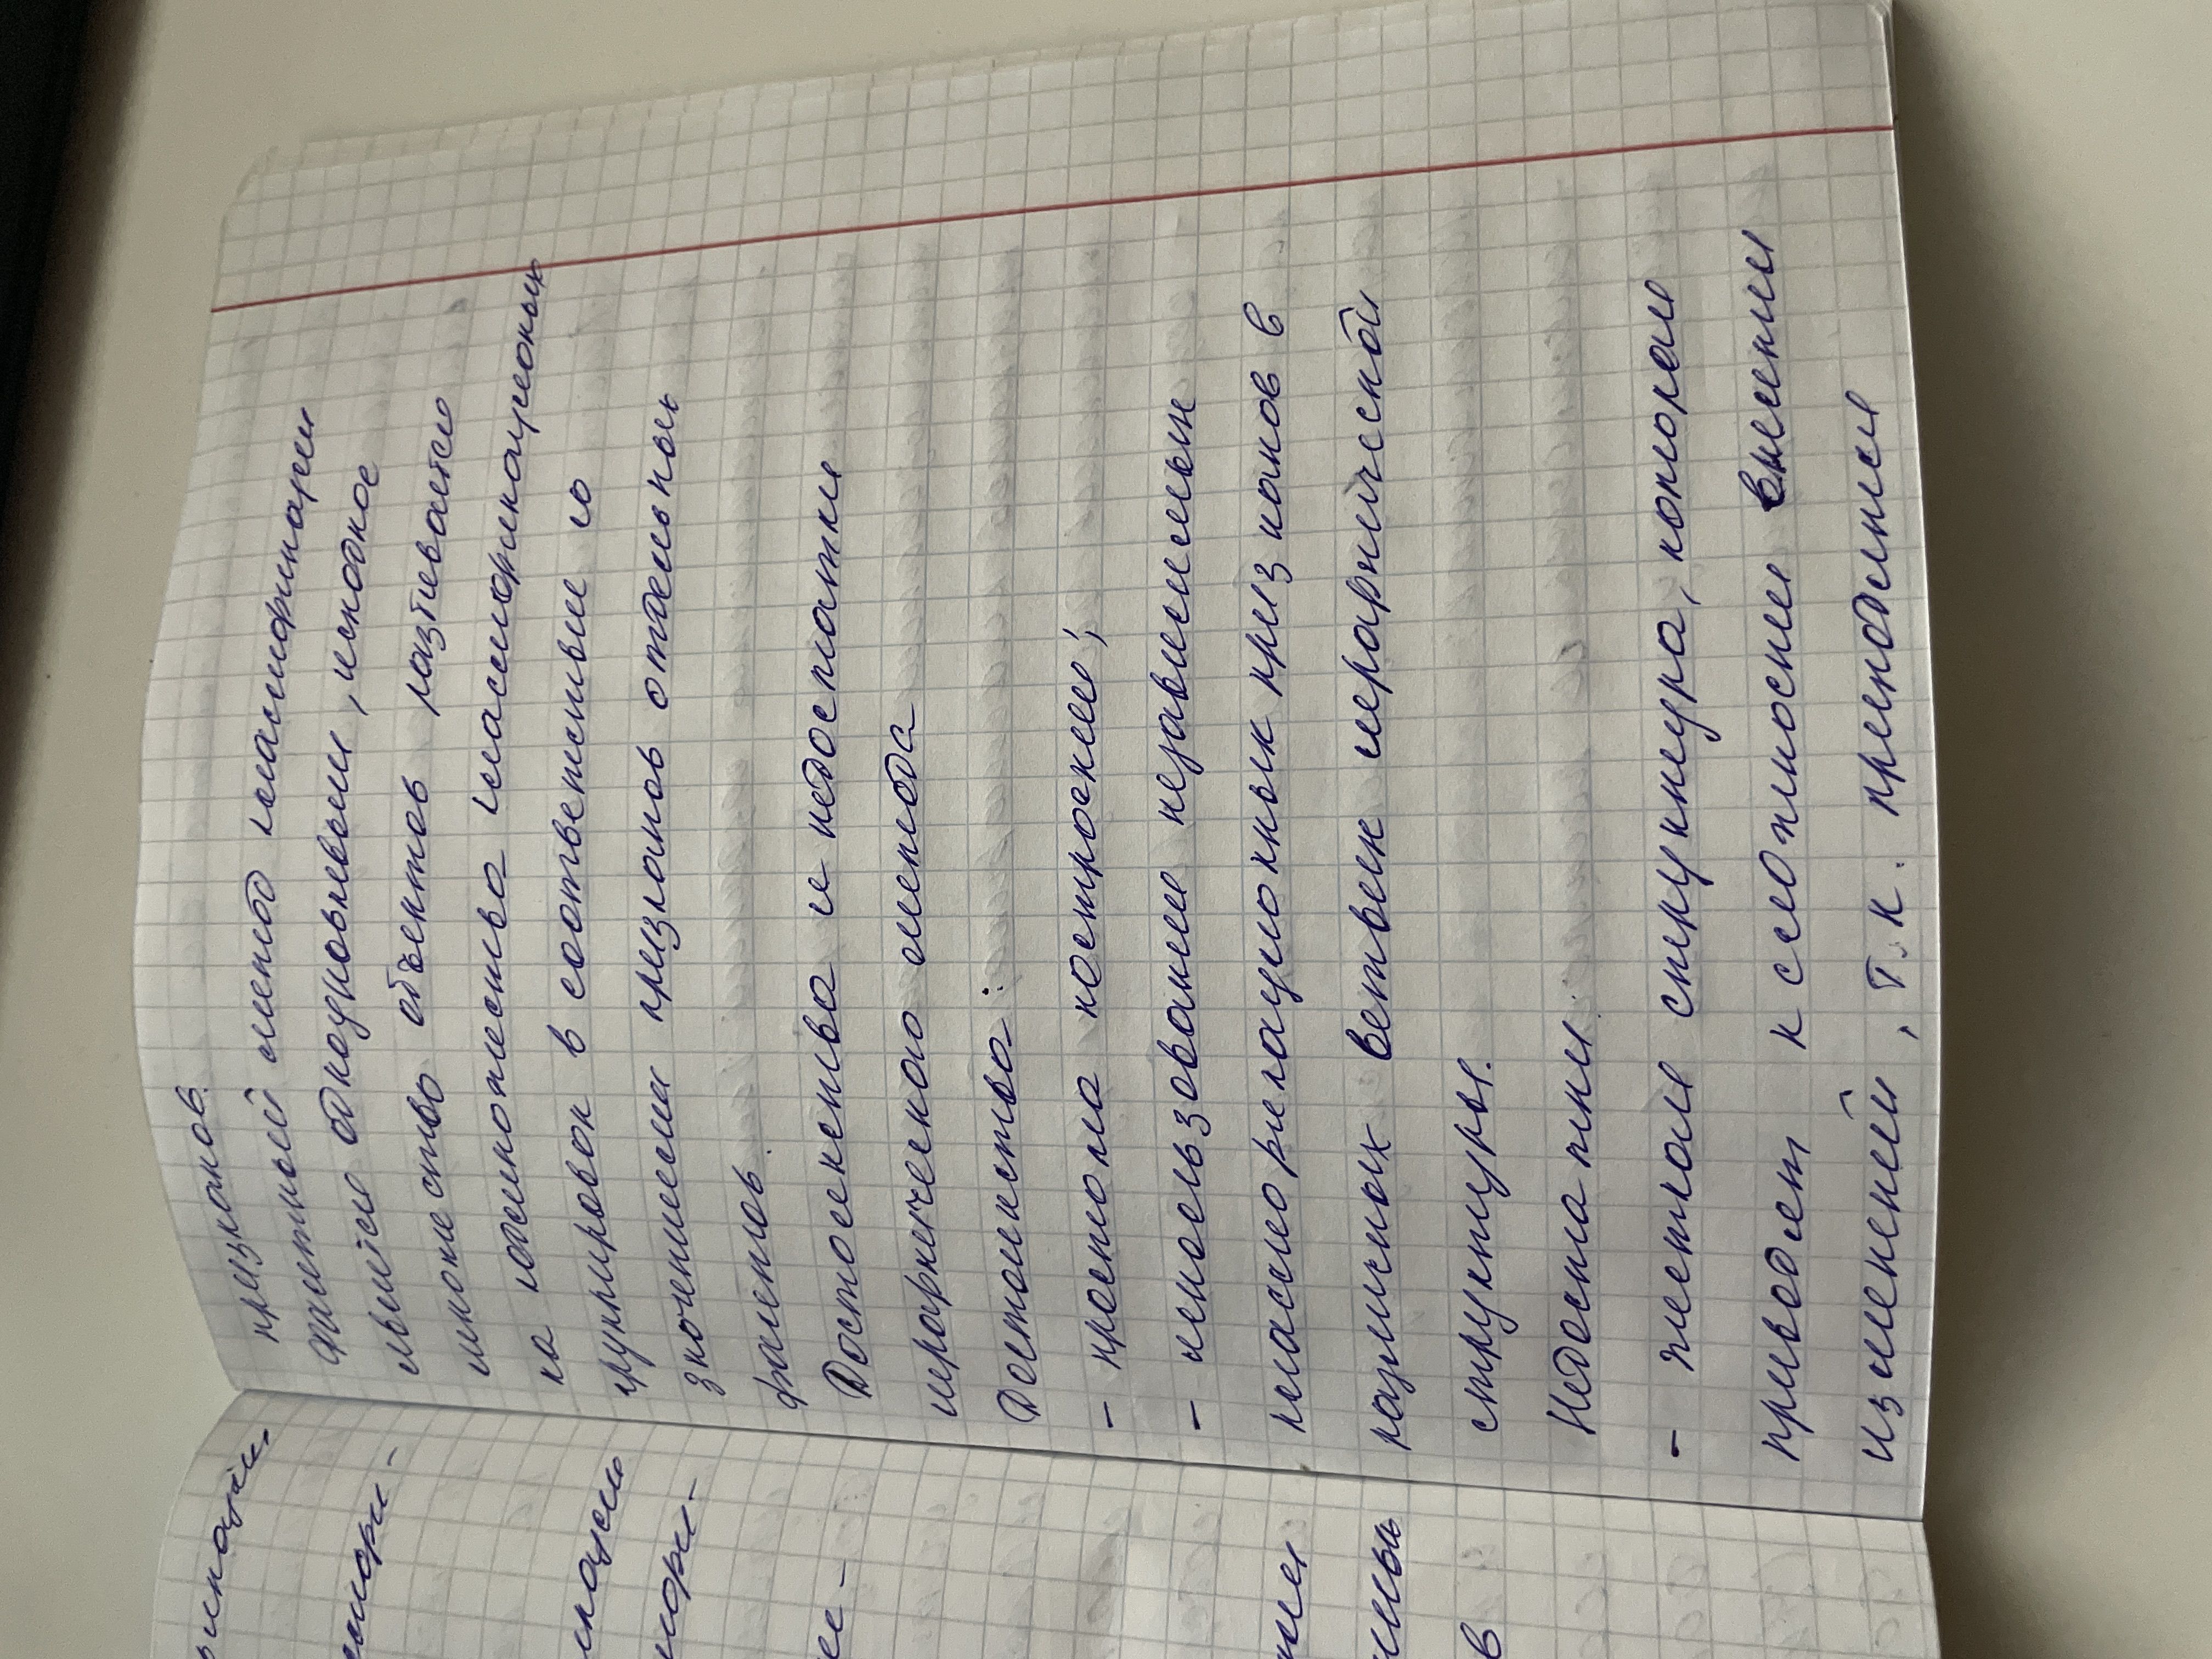 признаков.
Фасетный метод классификации
является одноуровневым, исходное
множество объектов разбивается
на подмножества классификационных
группировок в соответствие со
значениями признаков отдельных
фасетов.
Достоинства и недостатки
иерархического метода
Достоинства:
- простота построения;
- использование независимых
классификационных признаков в
различных ветвях иерархической
структуры.
Недостатки:
- жесткая структура, которая
приводит к сложности внесения
изменений, т.к. приходится
в